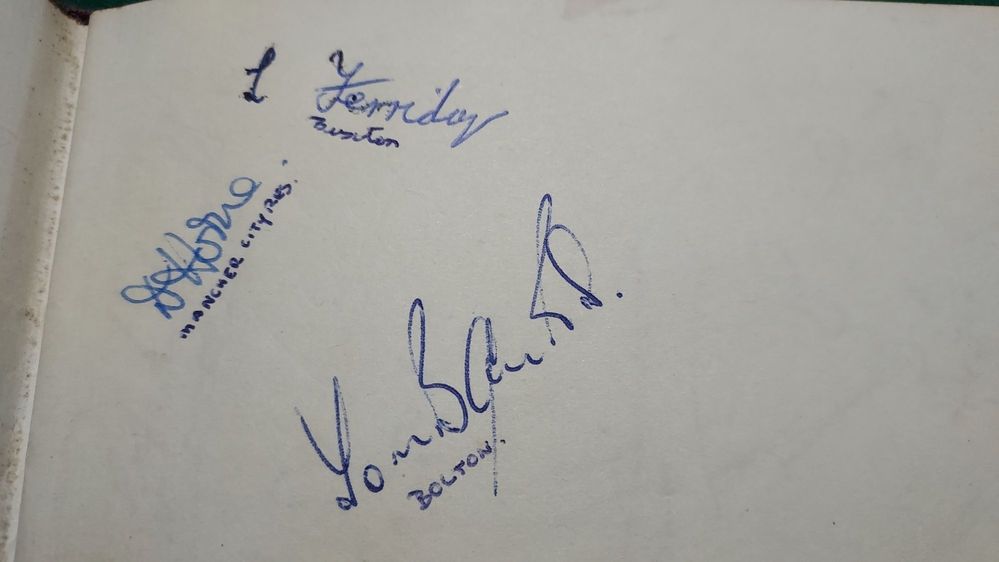 L Ferriday
Buxton
D Horne
MANCHER CITY RES.
Tom
BOLTON.